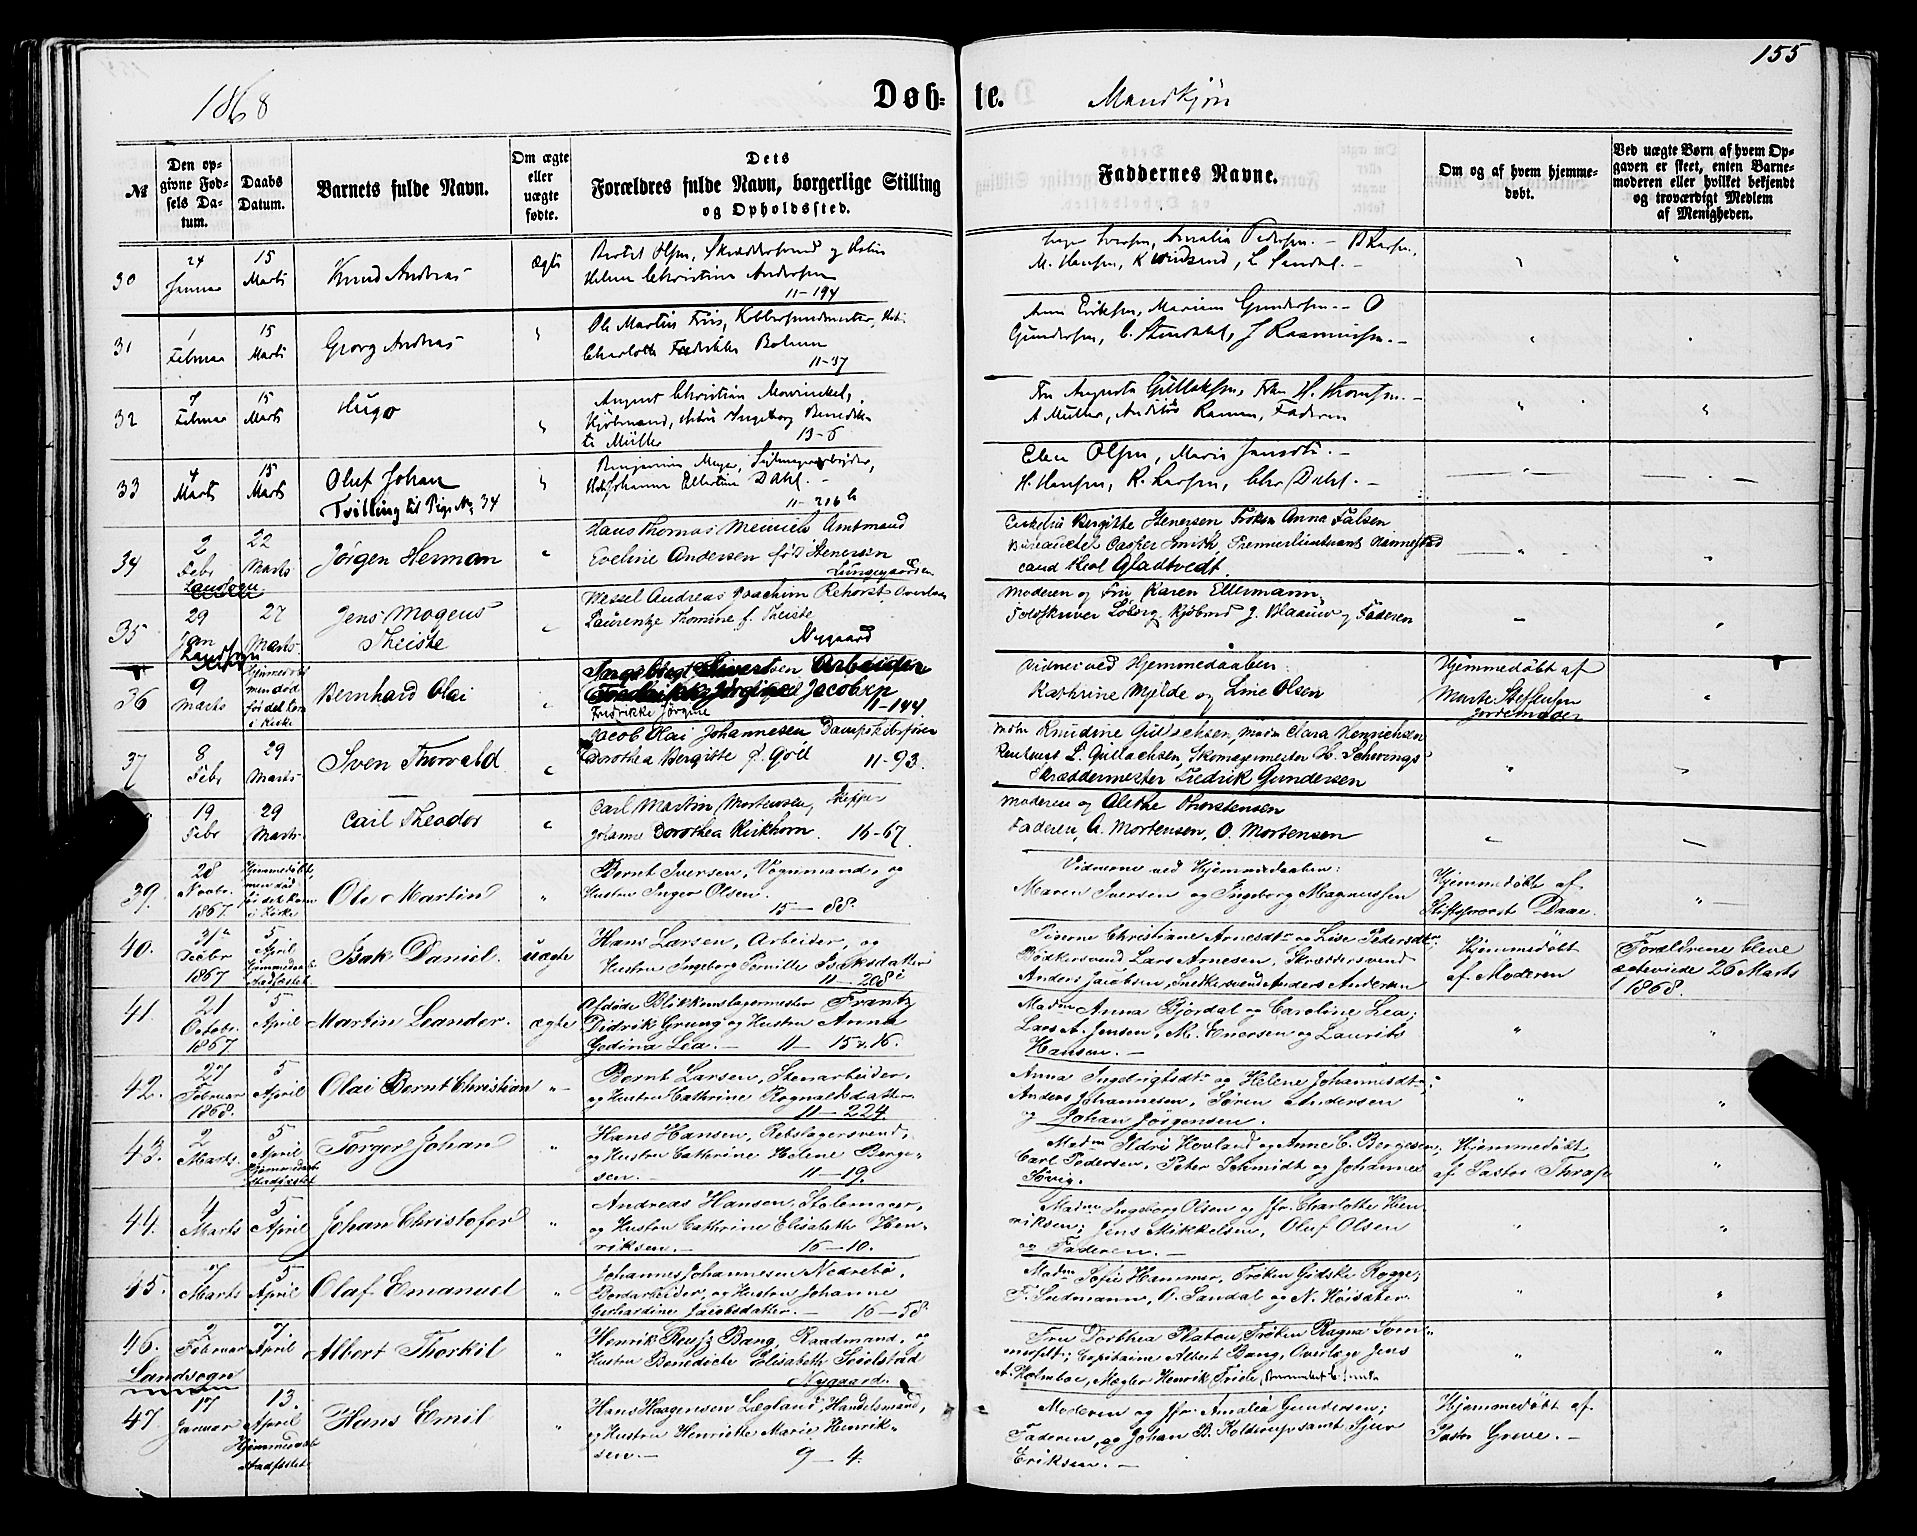 155
1868
Døb-
te.
Mandkjøn
№
Den op-
givne Fød-
sels Da-
tum.
Daabs
Datum.
Barnets fulde Navn.
Om ægte
eller
uægte
fødte.
Dets
Forældres fulde Navn, borgerlige Stilling
og Opholdssted.
Faddernes Navne.
Om og af hvem hjemme-
døbt.
Ved uægte Børn af hvem Op-
gaven er skeet, enten Barne-
moderen eller hvilket bekjendt
og troværdigt Medlem
af Menigheden.
30
24
Januar
15
Marts
Knud Andreas
Ægte
Olsen, og
Christine Andersen
11-194
Amalia Pedersen.
M. Hansen, L. Sandal.
31
1
Februar
15
Marts
Georg Andreas
Ole Martin Friis,
Charlotte Fredrikke
11-37
Eriksen, Gundersen. - O
Gundersen, J Rasmussen.
32
7
Februar
15
Marts
Hugo
August Christian Mowinckel,
Kjøbmand, Ingeborg Benedik-
te Müller 13-6
Fru Augusta
A Müller, Faderen
33
4
Marts
15
Marts
Oluf Johan
Tvilling til Pige № 34
Benjamin Meyer,
Johanne Ellertine Dahl.
11-216 b
Olsen,
H. Hansen, R. Larsen, Chr Dahl.
34
2
Febr
22
Marts
Jørgen Herman
Hans Thomas Meinich Amtmand
Eveline Andersen fød Stenersen
Lungegaarden
Bergitte Stenersen Frøken Anna Falsen
Casper Smith, Premierlieutnant
cand theol Gladtvedt
Landsogn
35
29
Jan
27
Marts
Jens Mogens
Theiste
Wessel Andreas Joachim Rehorst,
Laurentze Thomine f. Theiste
Nygaard
Moderen og Fru Karen Ellermann,
Kjøbmd J. Blaauw og Faderen
Landsogn
36
9
Marts
Hjemmedøbt
men død
før det kom
i Kirke
Bernhard Olai
Sivertsen Arbeider
Jacobsen
Fredrikke Jørgine
11-144
Vidner ved Hjemmedaaben:
Kathrine Mylde og Line Olsen
Hjemmedøbt af
Marthe Steffensen
Jordemoder
37
8
Febr
29
Marts
Sven Thorvald
Jacob Olai Johannesen
Dorothea Bergitte f. Göll 11-93.
Knudine Gullachsen, Mad. Clara Henrichsen
L. Gullachsen, Skomagermester H. Schwings
Skræddermester Fredrik Gundersen
19
Febr
29
Marts
Carl Theodor
Carl Martin Mortensen, Skipper
Johanne Dorothea Kirkhorn 16-67.
Moderen og Alethe Thorstensen
Faderen, A. Mortensen, O. Mortensen
39.
28
Novbr.
1867.
Hjemmedøbt,
men død
før det kom
i Kirke
Ole Martin
Bernt Iversen, Vognmand, og
Hustru Inger Olsen.
15-88.
Vidnerne ved Hjemmedaaben:
Maren Iversen og Ingeborg Magnussen
Hjemmedøbt af
Stiftsprovst Daae.
40.
Decbr
1867
5
April
Hjemmedaab
stadfæstet
Isak Daniel.
uægte
Hans Larsen, Arbeider, og
Hustru Ingeborg Pernille Isaksdatter
11-208
Pigerne Christiane Arnesdtr og Lise Pedersdtr.
Bødkersvend Lars Arnesen, Skræddersvend
Anders Jacobsen, Snedkersvend Anders Andersen
Hjemmedøbt
af Moderen
Forældrene bleve
ægteviede 26 Marts
1868.
41.
21
Octobr.
1867.
5
April
Martin Leander.
ægte
Afdøde Blikkenslagermester Frantz
Didrik Grung og Hustru Anna
Gedina Lea. - 11-15 v. 16.
Madm Anna Bjordal og Caroline Lea;
Lars A. Jensen, M. Enersen og Laurits
Hansen. -
42.
27
Februar
1868.
5
April
Olai Bernt Christian
Bernt Larsen, Stenarbeider,
og Hustru Cathrine Rognaldsdatter
11-224.
Anna Ingebrigtsdtr og Helene Johannesdtr;
Anders Johannesen, Søren Andersen
og Johan Jørgensen.
43.
2
Marts.
5
April
Hjemmedaab
stadfæstet
Torger Johan
Hans Hansen, Rebslagersvend,
og Hustru Cathrine Helene Berge-
sen. - 11-19.
Madm Ildri Hovland og Anne C. Bergesen;
Carl Pedersen, Peter Schmidt og Johannes
Søvig.
Hjemmedøbt
af Pastor Thrap
44.
4
Marts
5
April
Johan Christofer
Andreas Hansen, Stolemager,
og Hustru Cathrine Elisabeth Hen-
riksen. - 16-10.
Madm Ingeborg Olsen og Jfr. Charlotte Hen-
riksen; Jens Mikkelsen, Oluf Olsen
og Faderen. -
45.
7
Marts
5
April
Olaf Emanuel
Johannes Johannesen Nedrebø,
Jordarbeider, og Hustru Johanne
Gerhardine Jacobsdatter. - 16-58
Madm Sofie Hammer, Frøken Gidske Rogge;
F. Suhmann, O. Sandal og N. Høisæter.
46.
2
Februar
7
April
Albert Thorkil
Henrik Bang, Raadmand, og
Hustru Benedicte Elisabeth
Nygaard.
Fru Dorothea Platou, Frøken Ragna Som-
mefelt; Capitaine Albert Bang, Overlæge Jens
A. Holmboe, Mægler Henrik Friele,
Landsogn
47.
17
Januar
13.
April
Hjemmedaab
stadfæstet
Hans Emil
Hans Haagensen Lægland, Handelsmand,
og Hustru Henriette Marie Henrik-
sen. - 9-4.
Moderen og Jfr. Amalia Gundersen;
Faderen, og Johan B. Kolderup samt Sjur
Eriksen. -
Hjemmedøbt af
Pastor Greve. -